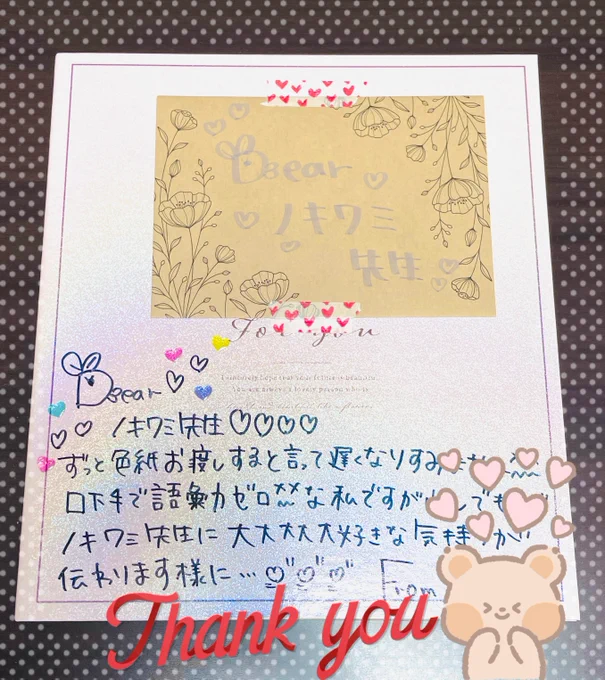 Dear
ノキワミ
先生
For you
Dear
ノキワミ先生♡♡♡♡
ずっと色紙お渡しすると言って遅くなりすみません
口下手で語彙力ゼロな私ですが
ノキワミ先生に大大大大大好きな気持ちが
伝わります様に…
From
Thank you